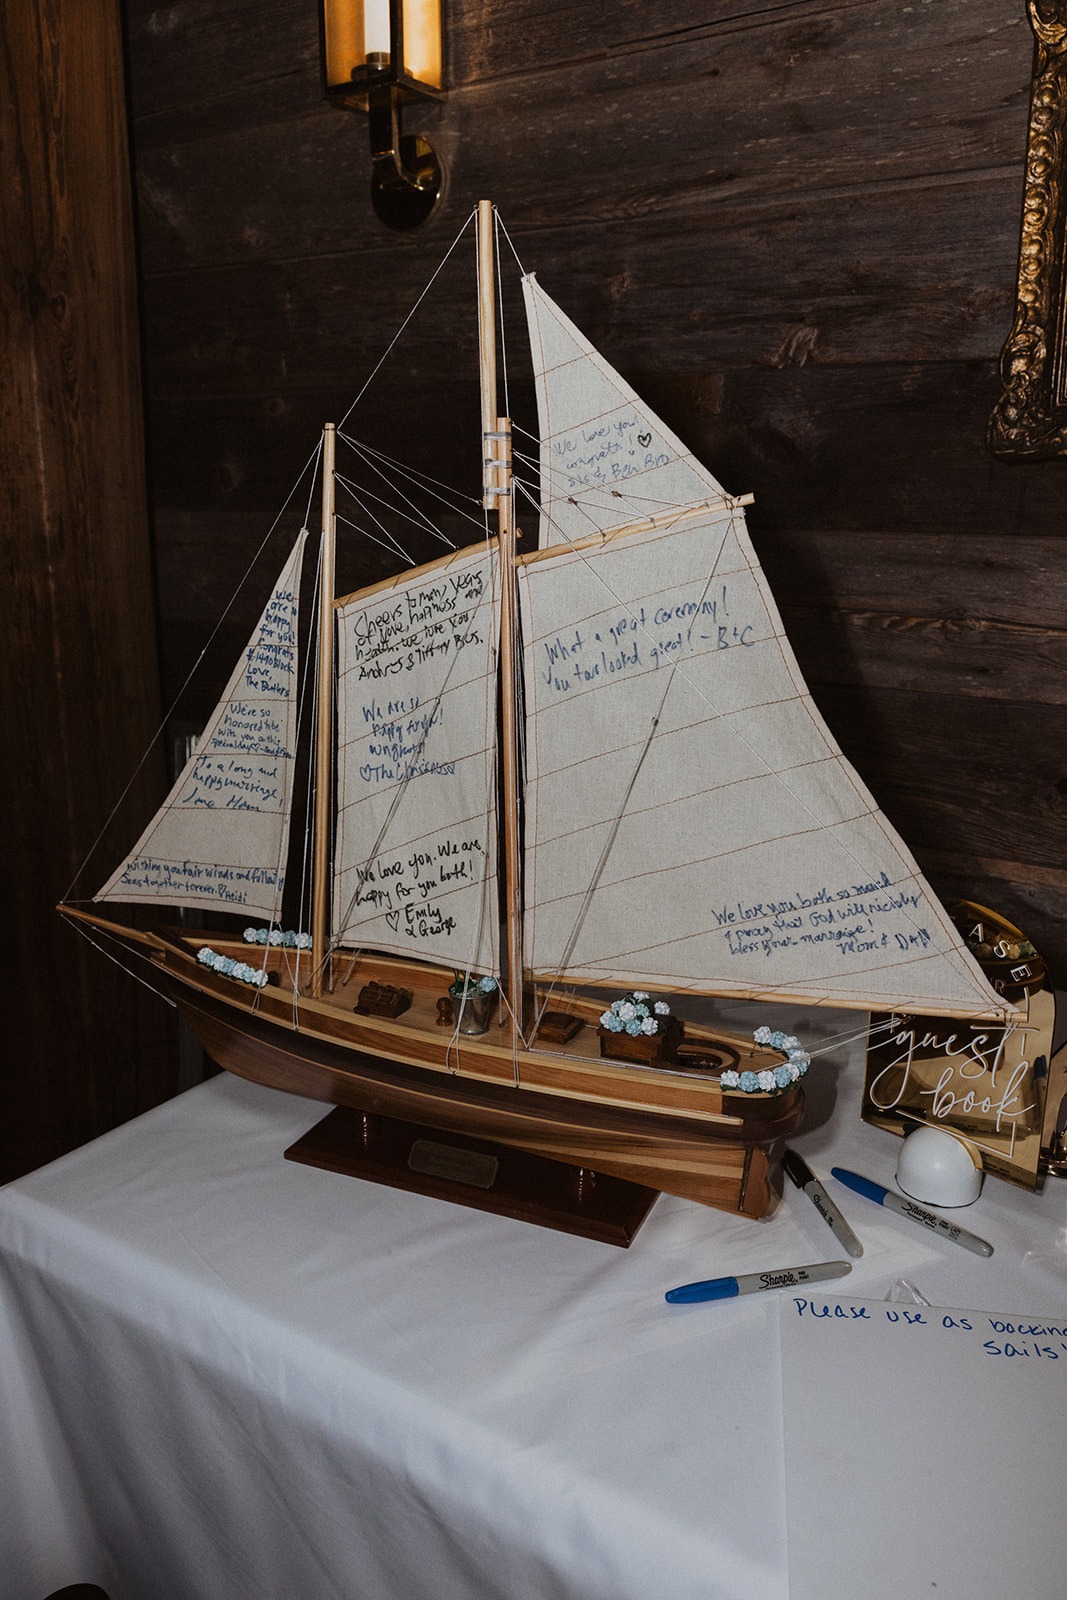 We love you
congrats!
sis & Ben Bro
What a great ceremony!
You two looked great! - B+C
We love you both so much
& pray that God will richly
bless your marriage!
Mom & Dad
Cheers to many years
of love, happiness and
health. We love you
Andrew & Tiffany
We are so
happy for you!
congrats!
We love you. We are
happy for you both!
Emily
& George
We
are so
happy
for you!
Congrats
Love,
The Butlers
We're so
honored to be
with you on this
special day
To a long and
happy marriage!
Love Mom
Wishing you fair winds and following
Seas together forever. Heidi
guest
book
Sharpie
Sharpie
Sharpie
Please use as backing
sails!